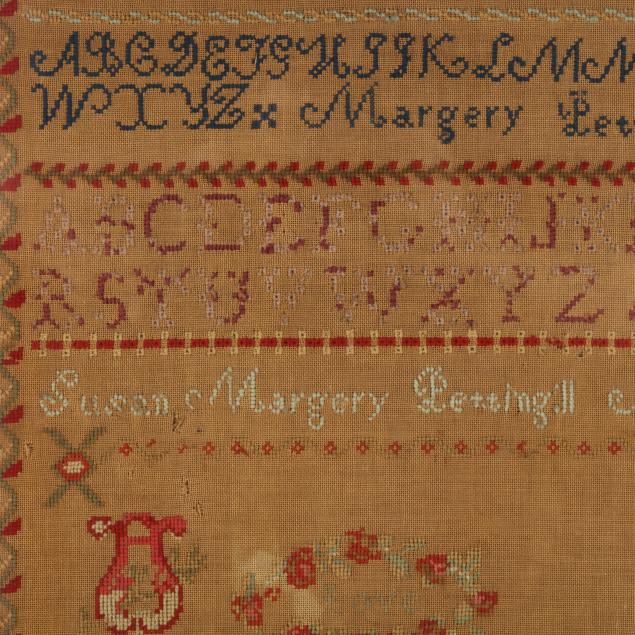 ABCDEFGHIJKLMN
WXYZ Margery Pett
ABCDEFGHIJK
RSTUVWXYZ
Susan Margery Pettingill
Love